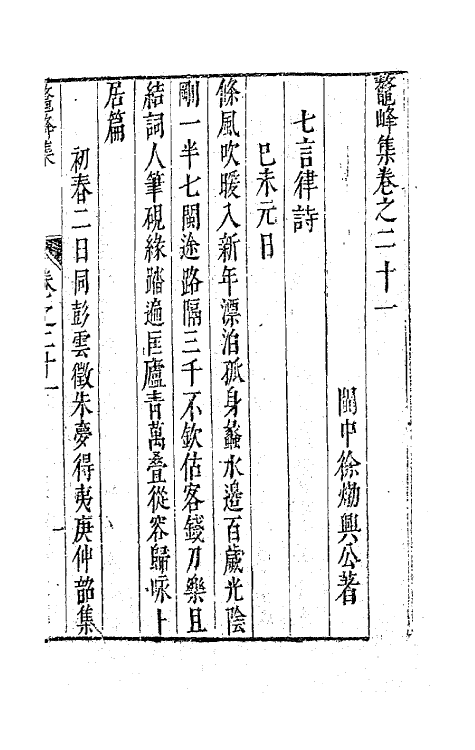 鼇峰集卷之二十一
閩中徐𤊹興公著
七言律詩
己未元日
條風吹暖入新年漂泊孤身蠡水邊百歲光陰
剛一半七閩途路隔三千不欽估客錢刀樂且
結詞人筆硯緣踏遍匡廬青萬疊從容歸咏卜
居篇
初春二日同彭雲徵朱夢得夷庚仲韶集
鼇峰集
卷之二十一
一